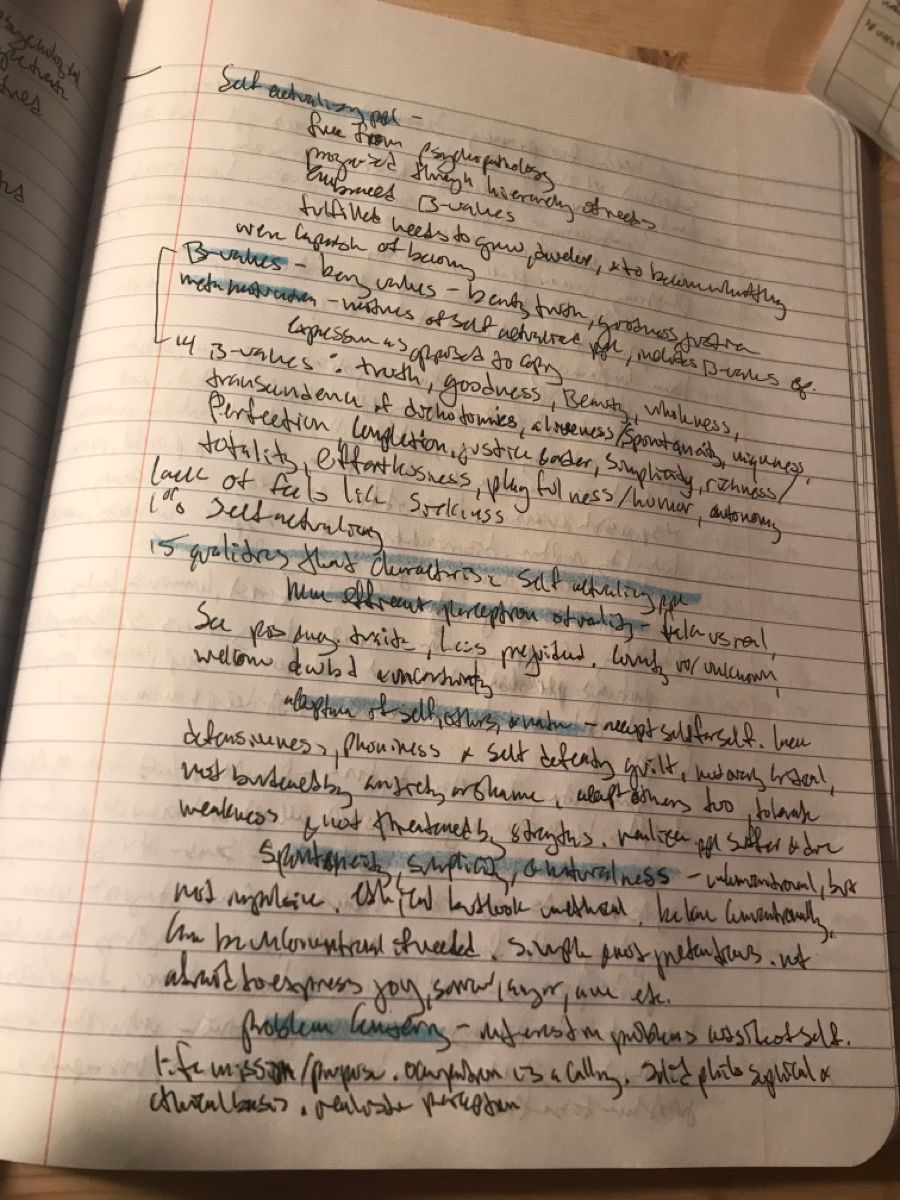 Psychologist
Self actualizing ppl -
free from psychopathology
progressed through hierarchy of needs
embraced B-values
fulfilled needs to grow, develop, & to become what they
were capable of becoming
B-values - being values - beauty, truth, goodness, justice
metamotivation - motives of self actualized ppl, includes B-values
expression as opposed to coping
14 B-values: truth, goodness, Beauty, wholeness,
transcendence of dichotomies, aliveness/spontaneity, uniqueness,
Perfection, completion, justice & order, simplicity, richness/
totality, effortlessness, playfulness/humor, autonomy
Lack of feels like sickness
or
Self actualizing
15 qualities that characterize self actualizing ppl
more efficient perception of reality - fake vs real,
See pos & neg. traits, less prejudiced. unknown,
welcome doubt & uncertainty
acceptance of self, others, & nature - accept self for self. lack
defensiveness, phoniness & self defeating guilt, not overly critical,
not burdened by anxiety or shame, accept others too, tolerate
weakness & not threatened by strengths. realize ppl suffer & die
Spontaneity, simplicity, & naturalness - unconventional, but
not impulsive. ethical but look unethical. behave conventionally,
Can be unconventional if needed. Simple & not pretentious. not
afraid to express joy, sorrow, anger, awe etc.
problem centering - interest in problems outside of self.
life mission/purpose. occupation is a calling. solid philosophical &
ethical basis. realistic perception